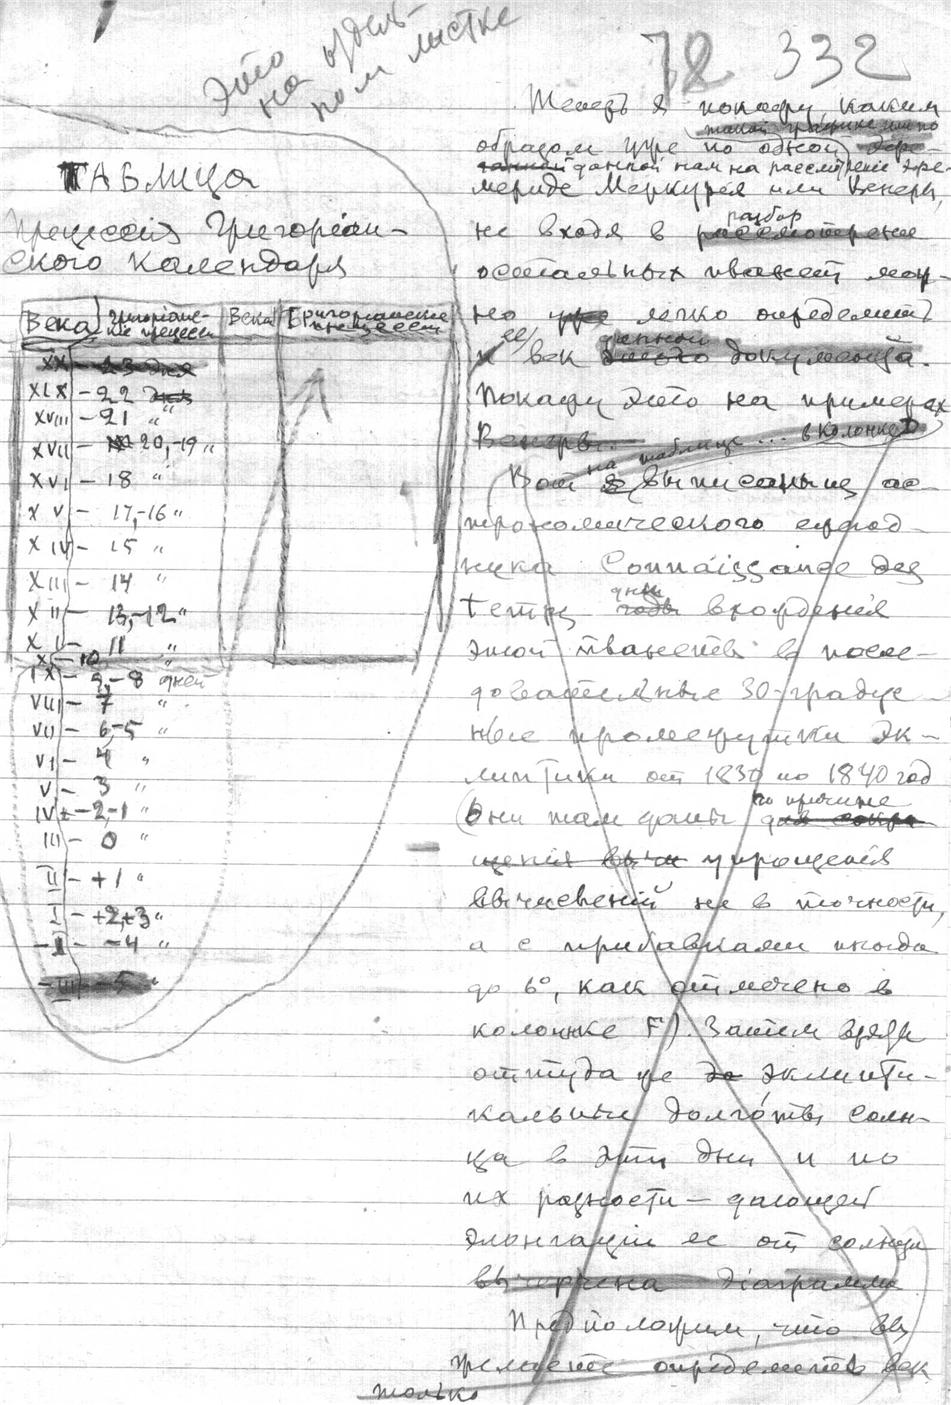 Это
на отдель-
ном листке
78 332
ТАБЛИЦА
прецессiя Григорiан-
ского календаря
Века Григорiанс-
кие прецессiи Века Григорианские
прецессии
XX - 23 дня
XIX - 22 дня
XVIII - 21 "
XVII - 20,-19 "
XVI - 18 "
XV - 17,-16 "
XIV - 15 "
XIII - 14 "
XII - 13,-12 "
XI - 11 "
X - 10 "
IX - 9,-8 дней
VIII - 7 "
VII - 6,-5 "
VI - 4 "
V - 3 "
IV - 2,-1 "
III - 0 "
II - +1 "
I - +2,+3 "
-I - -4 "
-III - -5 "
Теперь я покажу каким
такой графике или по
образом уже по одной
данной нам на рассмотренiе эфе-
мериде Меркурiя или Венеры,
разбор
не входя в рассмотренiе
остальных планет мож-
но уже легко определить
её данной
и век документа.
Покажу это на примерах
Венеры...
на таблице ... в колонке D
Вот выписаныя из ас-
трономического ежегод-
ника Connaissance des
дни
temps годы вхожденiя
этой планеты в после-
довательные 30-градус-
ные промежутки эк-
липтики от 1830 по 1840 год
по причине
(Они там даны для сокра-
щенiя выч упрощенiя
вычисленiй не в точности,
а с прибавками иногда
до 6°, как отмечено в
колонке F). Затем взяты
оттуда же до эклипти-
кальные долготы солн-
ца в эти дни и по
их разности — дающей
элонгацiи ее от солнца
вычерчена дiаграмма
Предположим, что вы
желаете определить век
только